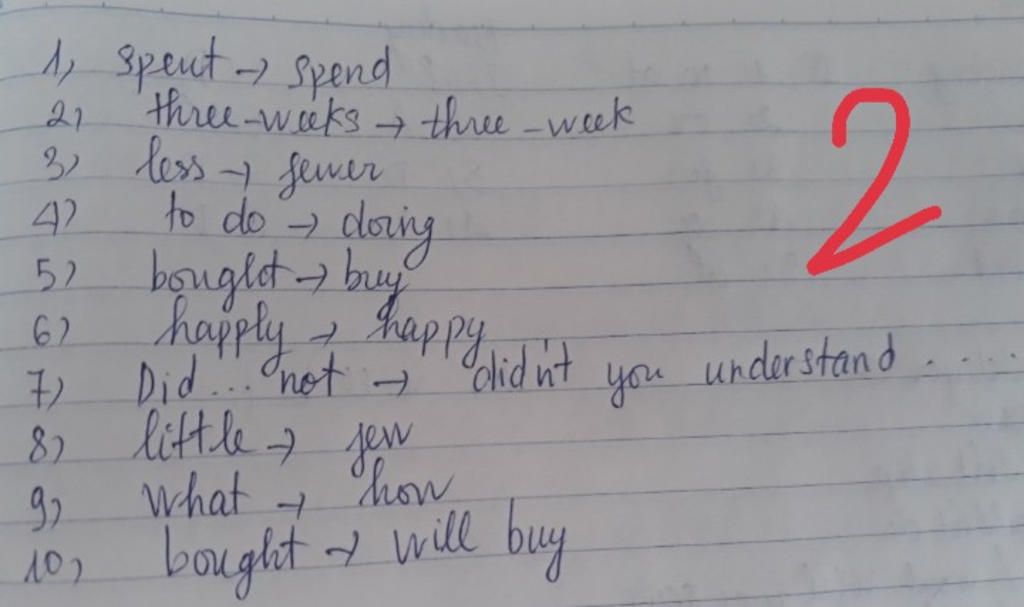 1) spent → spend
2) three-weeks → three-week
3) less → fewer
4) to do → doing
5) bought → buy
6) happly → happy
7) Did... not → didn't you understand .....
8) little → few
9) What → how
10) bought → will buy
2